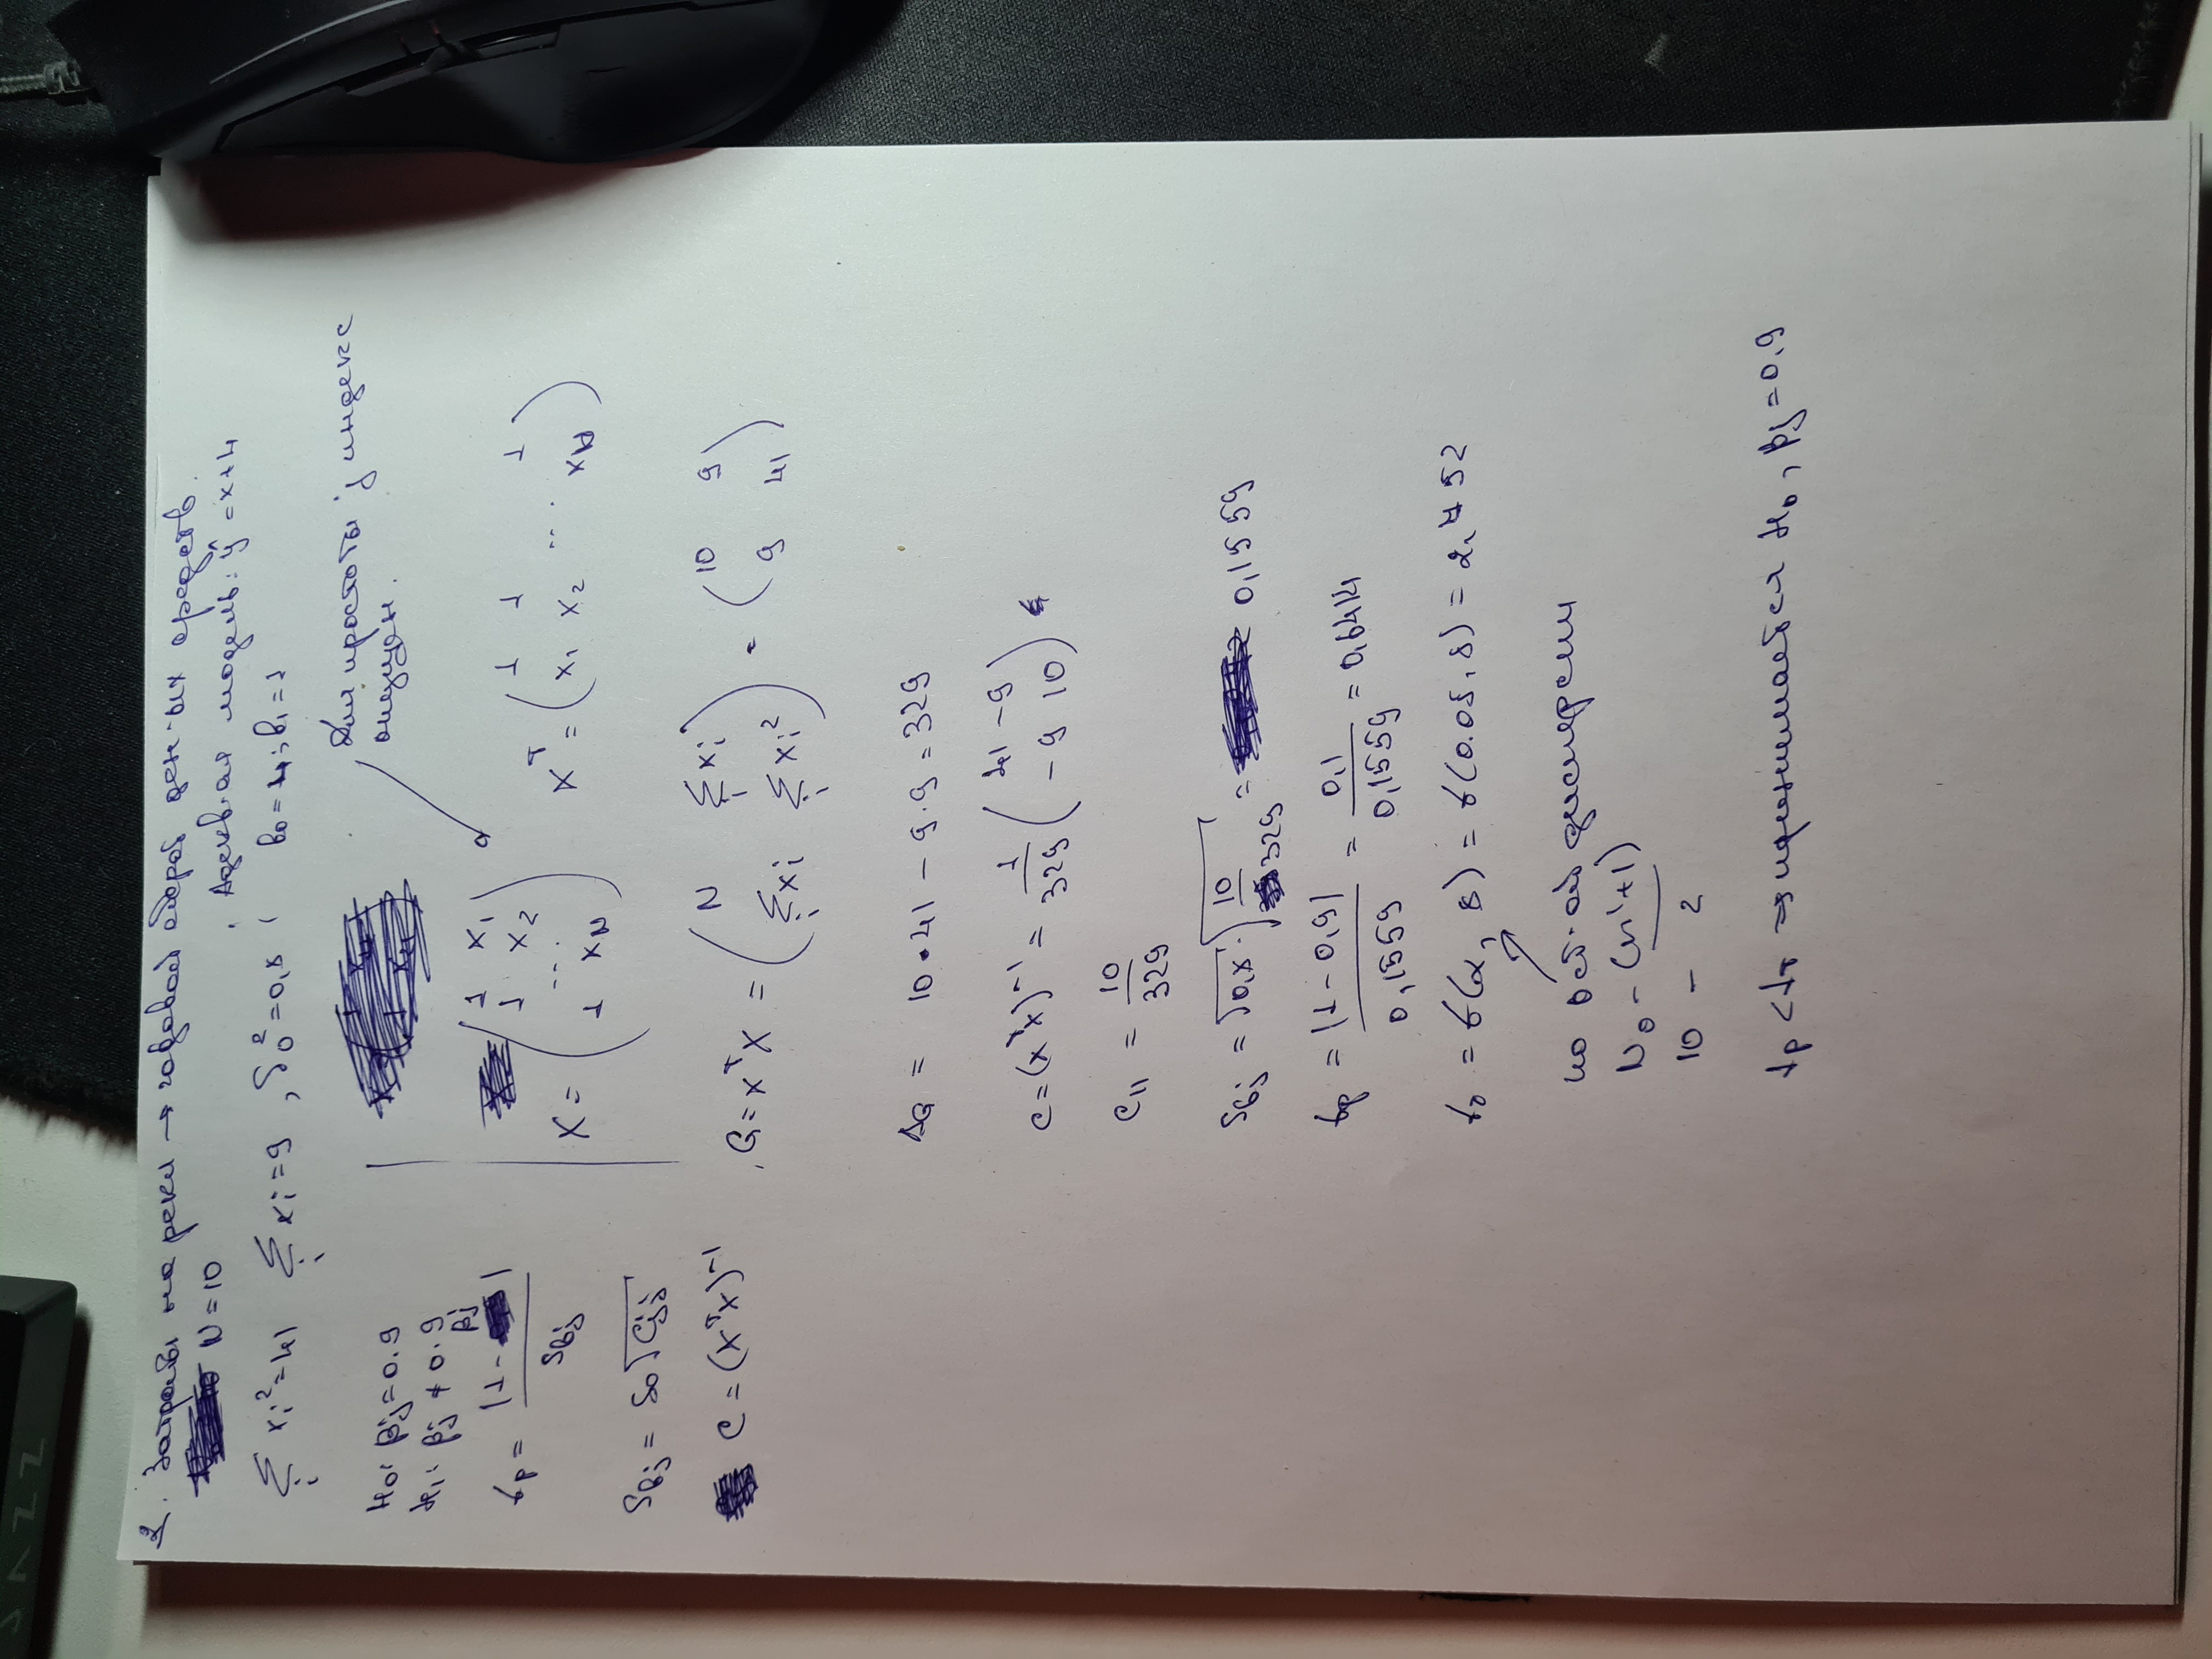 JAZZ
2. Затраты на рекл → годовой оборот ден-ых средств.
N = 10
, Адекв-ая модель: ŷ = x+4
∑i xi² = 41 ∑i xi = 9 , S0² = 0,8 , b0 = 4; b1 = 1
Для простоты j индекс
опущен.
H0: βj = 0.9
H1: βj ≠ 0.9
tp = |1 - βj| / Sbj
Sbj = S0 √Cjj
C = (XᵀX)⁻¹
X = ( 1 x1
1 x2
...
1 xN )
Xᵀ = ( 1 1 ... 1
x1 x2 ... xN )
G = XᵀX = ( N ∑i xi
∑i xi ∑i xi² ) = ( 10 9
9 41 )
ΔG = 10 · 41 - 9 · 9 = 329
C = (XᵀX)⁻¹ = 1/329 ( 41 -9
-9 10 )
C11 = 10/329
Sbj = √0,8 · √10/329 = 0,1559
tp = |1 - 0,9| / 0,1559 = 0,1 / 0,1559 = 0,6414
tт = t(α, 8) = t(0.05, 8) = 2,752
по ост-ой дисперсии
N0 - (n'+1)
10 - 2
tp < tт ⇒ принимается H0, βj = 0,9